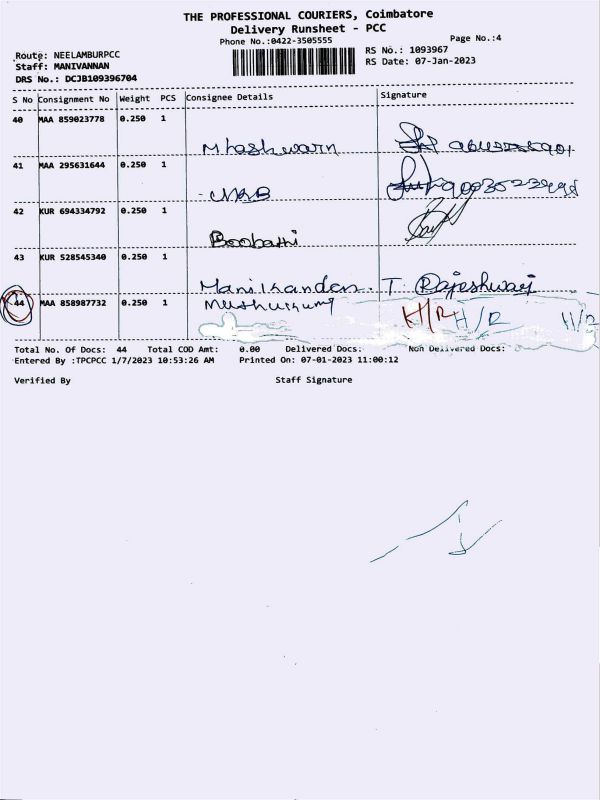 THE PROFESSIONAL COURIERS, Coimbatore
Delivery Runsheet - PCC
Phone No.:0422-3505555
Page No.:4
Route: NEELAMBURPCC
RS No.: 1093967
Staff: MANIVANNAN
RS Date: 07-Jan-2023
DRS No.: DCJB109396704
S No Consignment No Weight PCS Consignee Details Signature
40 MAA 859023778 0.250 1
41 MAA 295631644 0.250 1
42 KUR 694334792 0.250 1
Boobathi
43 KUR 528545340 0.250 1
Manikandan T. Rajeshwari
44 MAA 858987732 0.250 1
H/R H/R
Total No. Of Docs: 44 Total COD Amt: 0.00 Delivered Docs: Non Delivered Docs:
Entered By :TPCPCC 1/7/2023 10:53:26 AM Printed On: 07-01-2023 11:00:12
Verified By Staff Signature